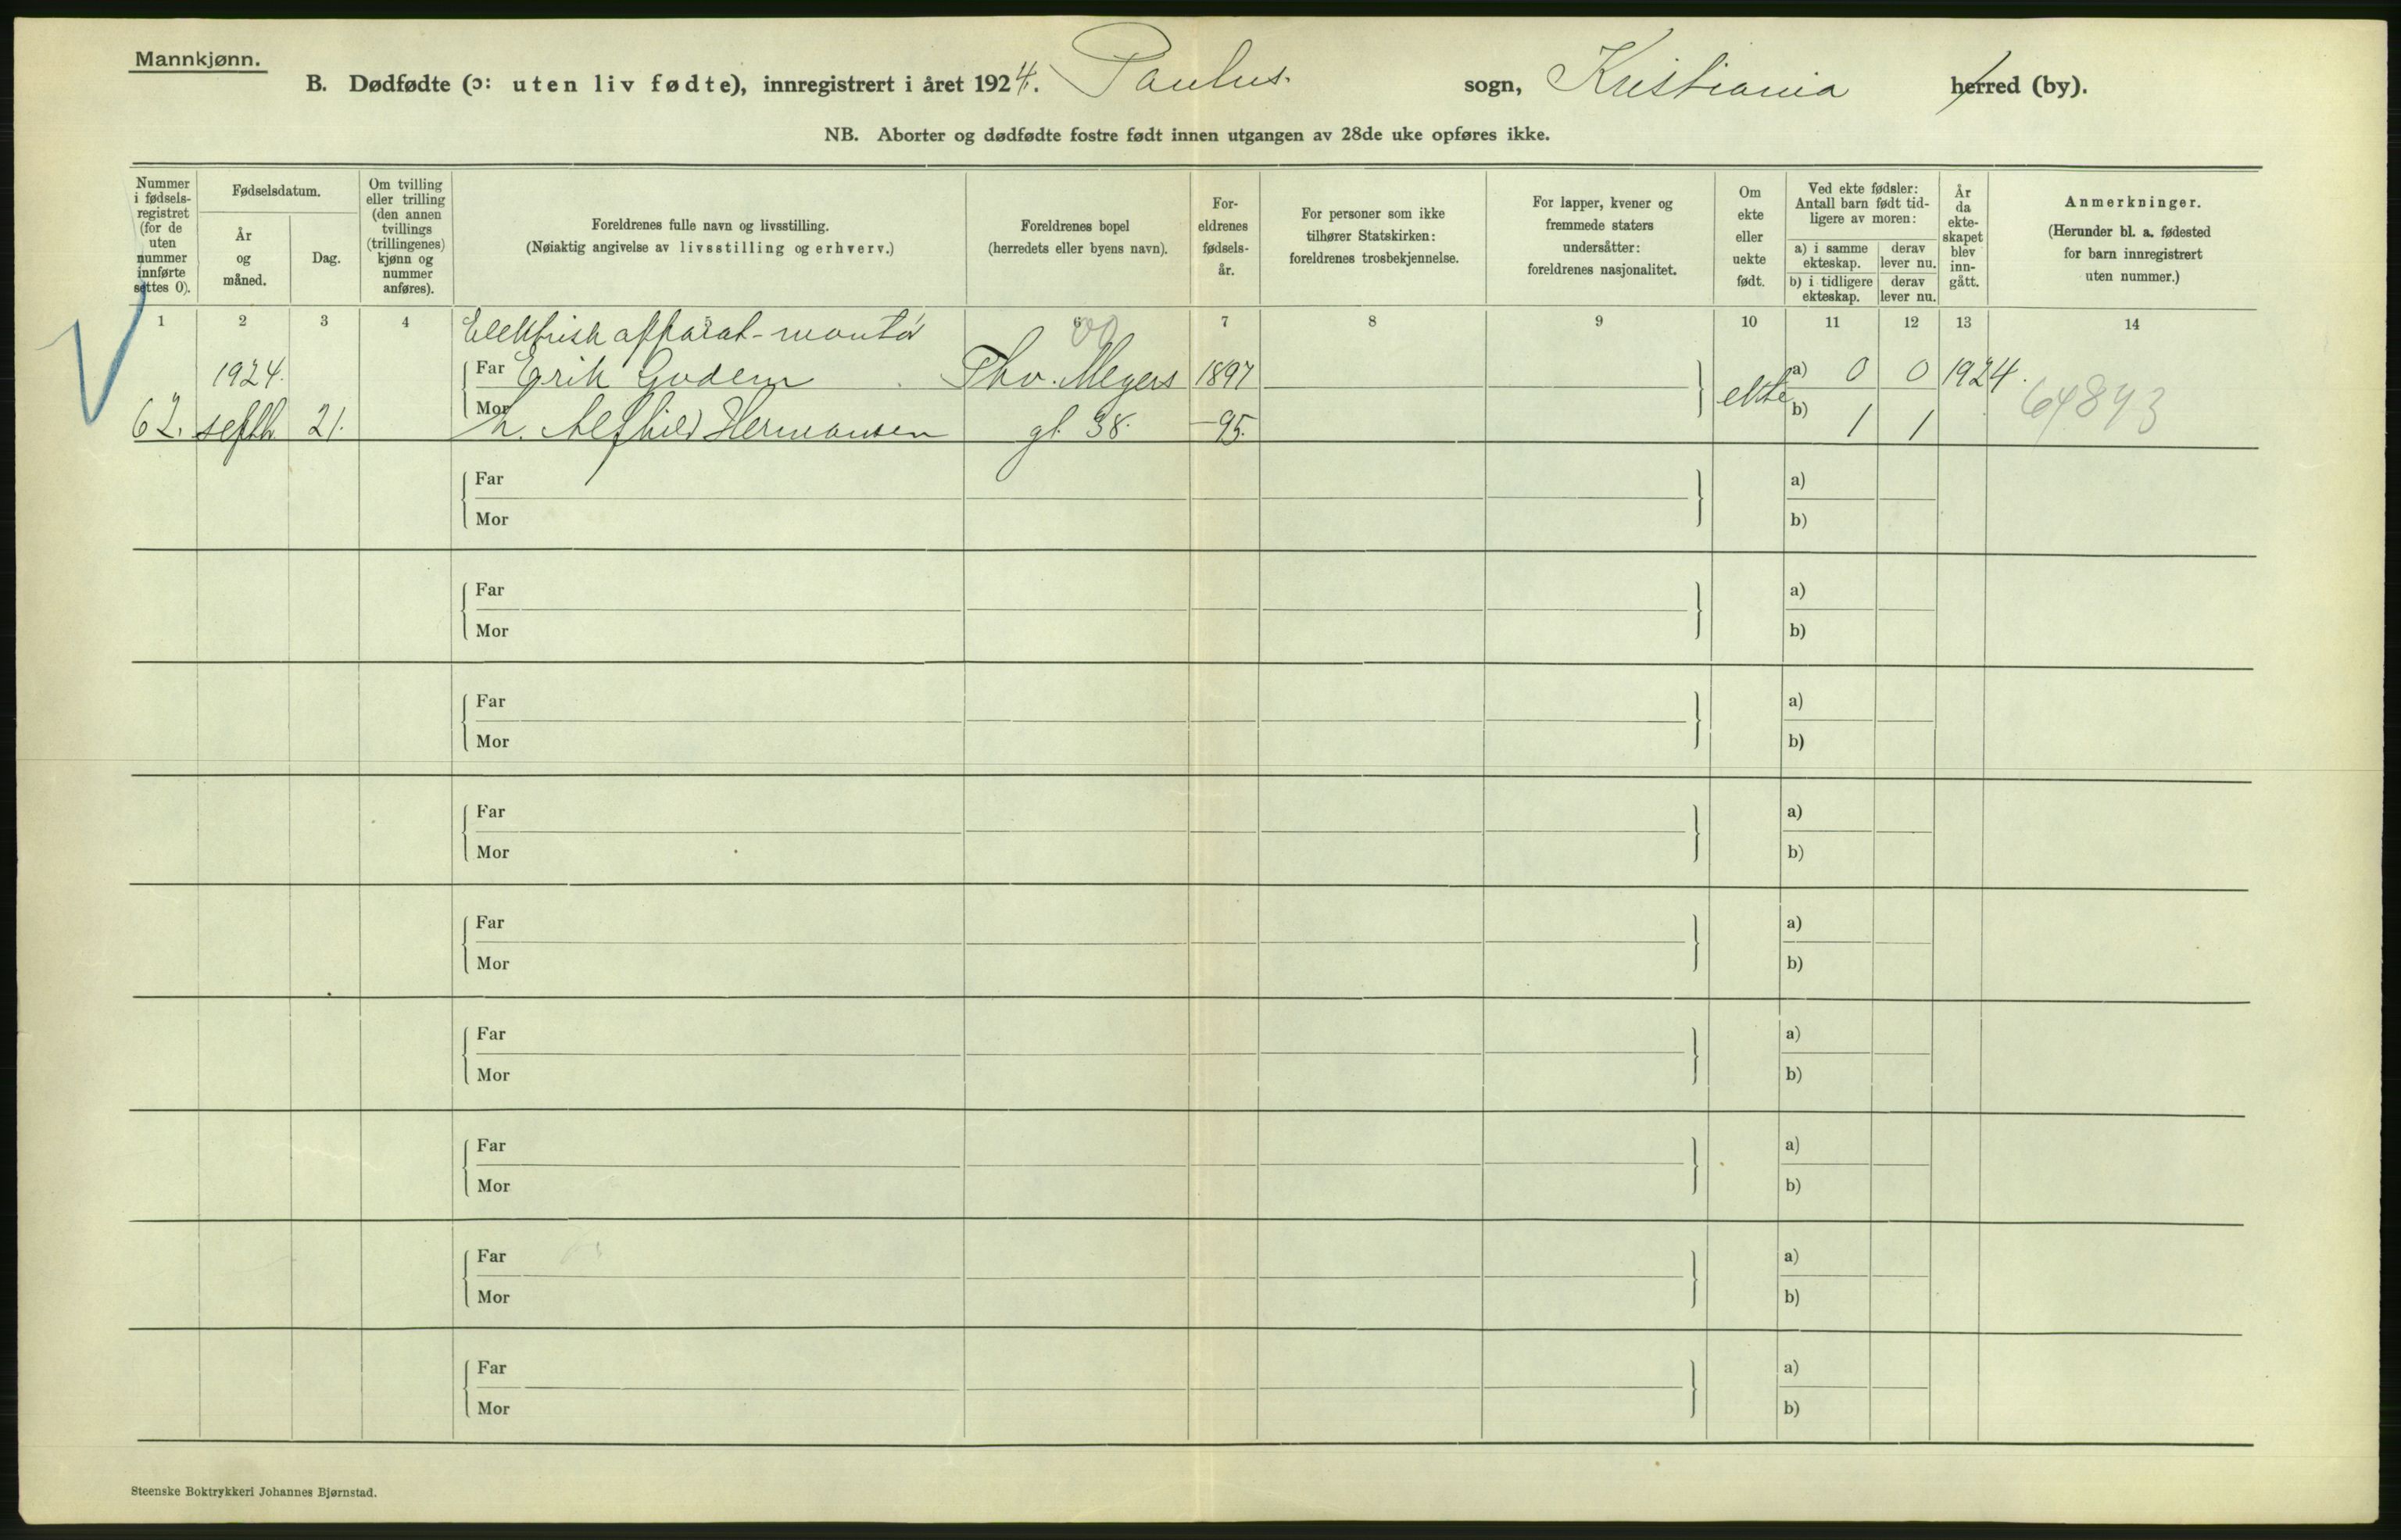 Mannkjønn.
B. Dødfødte (ɔ: uten liv fødte), innregistrert i året 1924. Paulus. sogn, Kristiania herred (by).
NB. Aborter og dødfødte fostre født innen utgangen av 28de uke opføres ikke.
Nummer i fødsels-registret (for de uten nummer innførte settes 0).
Fødselsdatum.
År og måned.
Dag.
Om tvilling eller trilling (den annen tvillings (trillingenes) kjønn og nummer anføres).
Foreldrenes fulle navn og livsstilling.
(Nøiaktig angivelse av livsstilling og erhverv.)
Foreldrenes bopel
(herredets eller byens navn).
For-eldrenes fødsels-år.
For personer som ikke tilhører Statskirken: foreldrenes trosbekjennelse.
For lapper, kvener og fremmede staters undersåtter: foreldrenes nasjonalitet.
Om ekte eller uekte født.
Ved ekte fødsler: Antall barn født tid-ligere av moren:
a) i samme ekteskap.
derav lever nu.
b) i tidligere ekteskap.
derav lever nu.
År da ekte-skapet blev inn-gått.
Anmerkninger.
(Herunder bl. a. fødested for barn innregistrert uten nummer.)
1 2 3 4 5 6 7 8 9 10 11 12 13 14
Elektrisk apparat-montør
1924. Far Erik Godem Thv. Meyers 1897 ekte a) 0 0 1924.
62. septb. 21. Mor h. Alfhild Hermansen gt. 38. -95. b) 1 1 64893
Far a)
Mor b)
Far a)
Mor b)
Far a)
Mor b)
Far a)
Mor b)
Far a)
Mor b)
Far a)
Mor b)
Far a)
Mor b)
Far a)
Mor b)
Far a)
Mor b)
Steenske Boktrykkeri Johannes Bjørnstad.